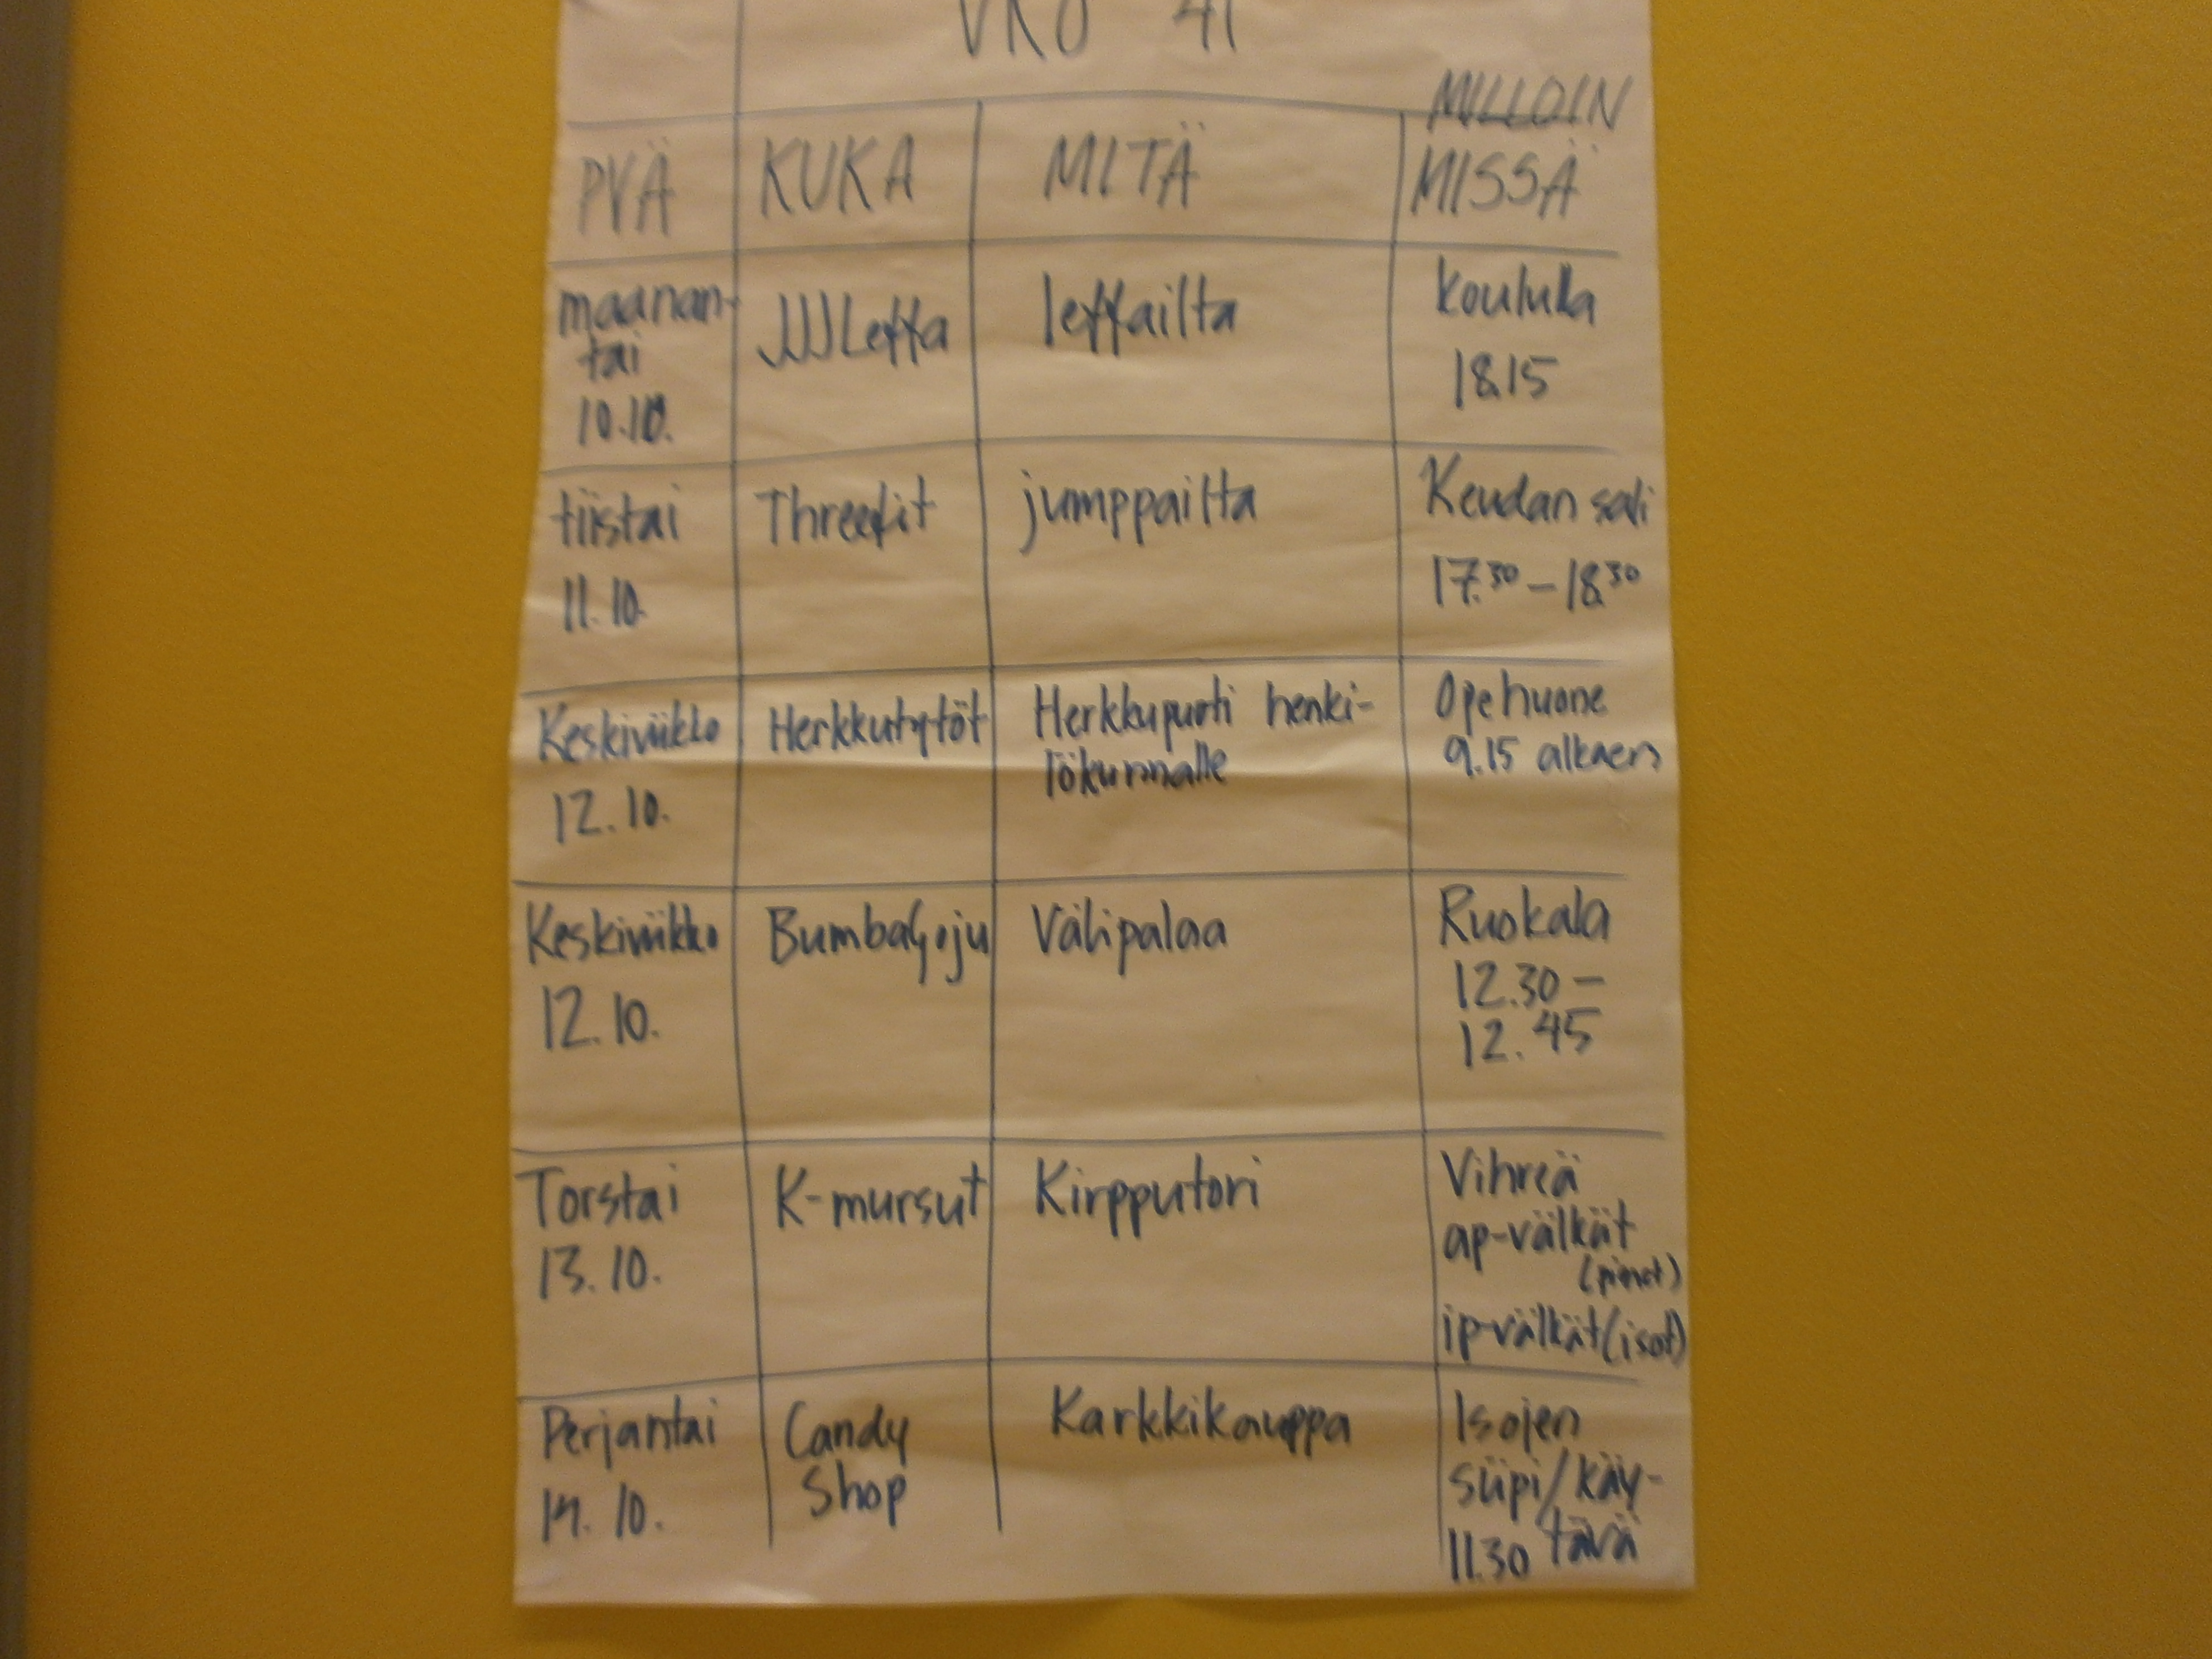 VKO 41
MILLOIN
PVÄ KUKA MITÄ MISSÄ
maanan-
tai
10.10.
JJJLeffa
leffailta
koululla
18.15
tiistai
11.10.
Threefit
jumppailta
Keudan sali
17.30-18.30
Keskiviikko
12.10.
Herkkutytöt
Herkkupuoti henki-
lökunnalle
Opehuone
9.15 alkaen
Keskiviikko
12.10.
BumbaGoju
Välipalaa
Ruokala
12.30-
12.45
Torstai
13.10.
K-mursut
Kirpputori
Vihreä
ap-välkät
(pienet)
ip-välkät (isot)
Perjantai
14.10.
Candy
Shop
Karkkikauppa
Isojen
siipi/käy-
tävä
11.30